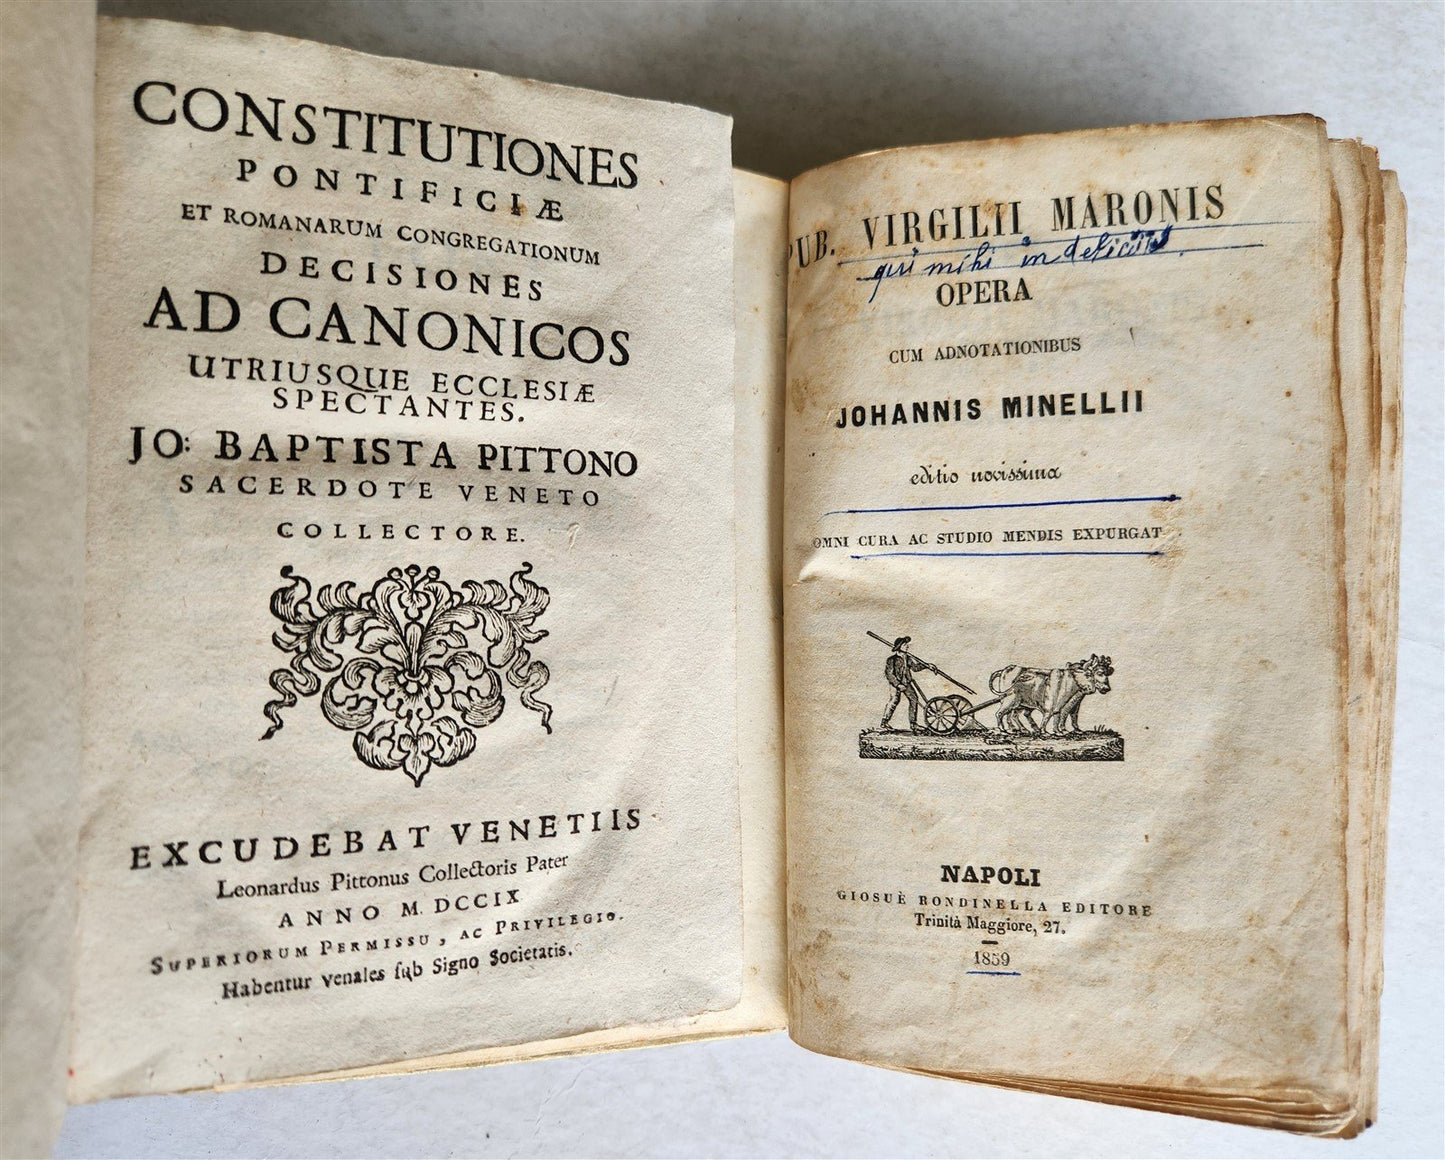 CONSTITUTIONES
PONTIFICIÆ
ET ROMANARUM CONGREGATIONUM
DECISIONES
AD CANONICOS
UTRIUSQUE ECCLESIÆ
SPECTANTES.
JO: BAPTISTA PITTONO
SACERDOTE VENETO
COLLECTORE.
EXCUDEBAT VENETIIS
Leonardus Pittonus Collectoris Pater
ANNO M. DCCIX
SUPERIORUM PERMISSU, AC PRIVILEGIO.
Habentur venales ſub Signo Societatis.
PUB. VIRGILII MARONIS
qui mihi in deliciis.
OPERA
CUM ADNOTATIONIBUS
JOHANNIS MINELLII
editio novissima
OMNI CURA AC STUDIO MENDIS EXPURGAT
NAPOLI
GIOSUÈ RONDINELLA EDITORE
Trinità Maggiore, 27.
1859